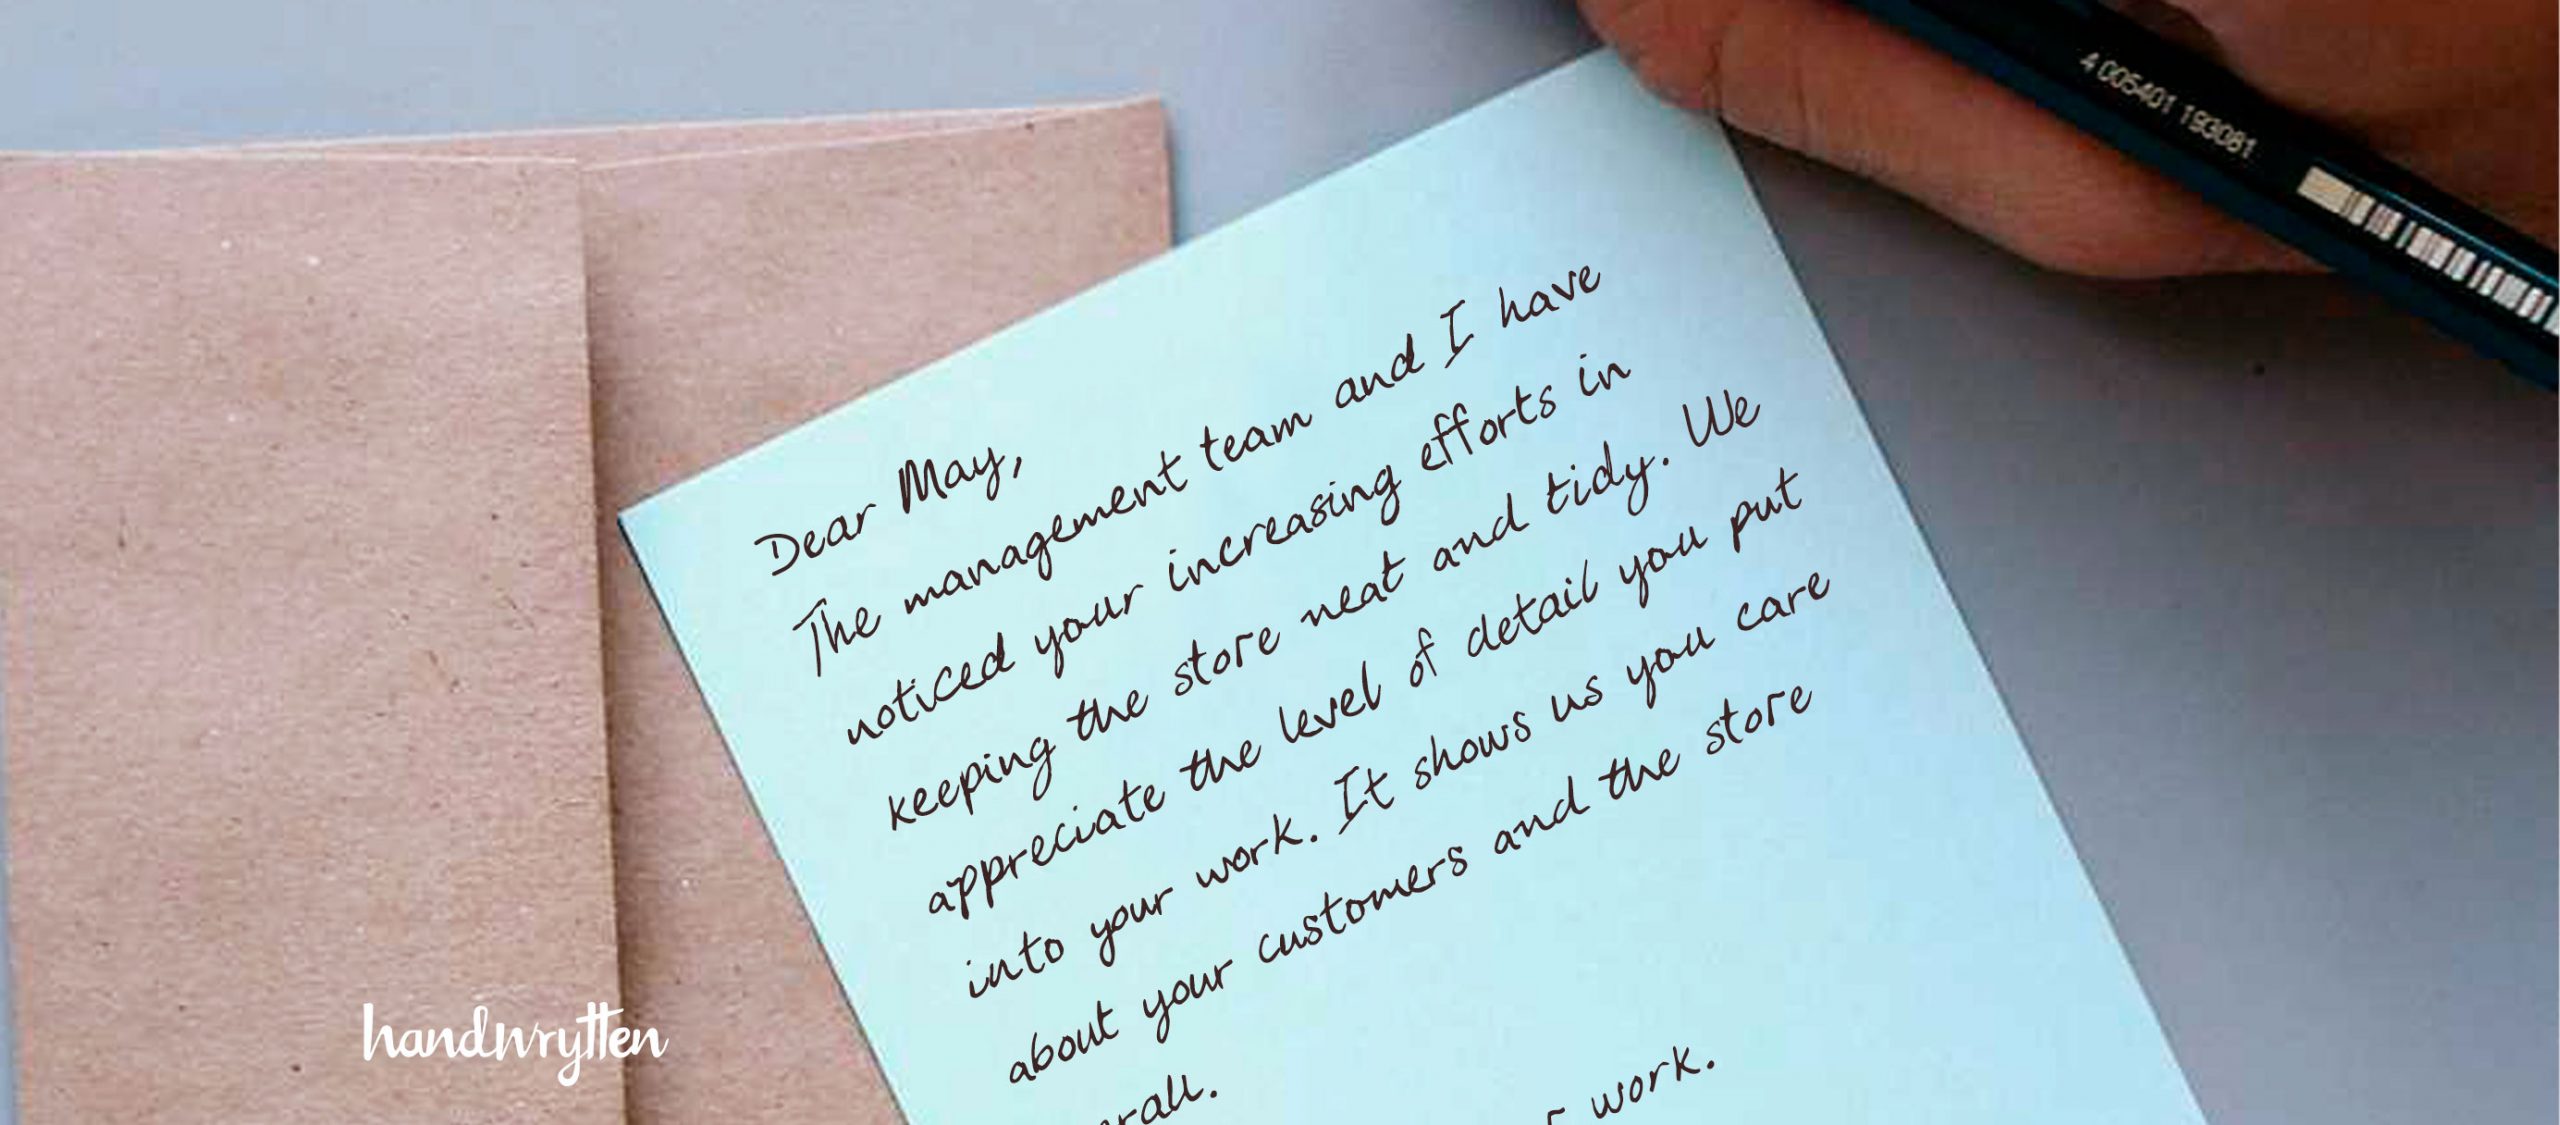 4 005401 193081
Dear May,
The management team and I have
noticed your increasing efforts in
keeping the store neat and tidy. We
appreciate the level of detail you put
into your work. It shows us you care
about your customers and the store
work.
handwrytten